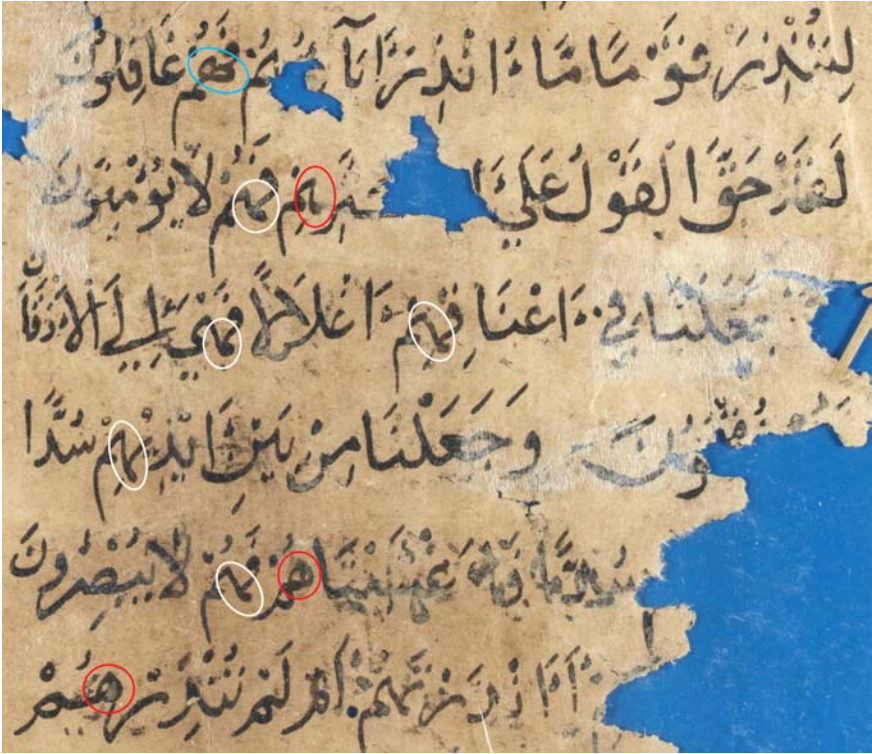 لِتُنْذِرَ قَوْمًا مَّا اُنْذِرَ فَهُمْ غَافِلُونَ
لَقَدْ حَقَّ الْقَوْلُ عَلَي فَهُمْ لَا يُؤْمِنُونَ
جَعَلْنَا فِي اَعْنَاقِهِمْ اَغْلَالًا فَهْيَ اِلَي الْاَذْقَا
وَجَعَلْنَا مِنْ بَيْنِ اَيْدِيهِمْ سُدًّا
فَهُمْ لَا يُبْصِرُونَ
ءَاَنْذَرْتَهُمْ اَمْ لَمْ تُنْذِرْهُمْ